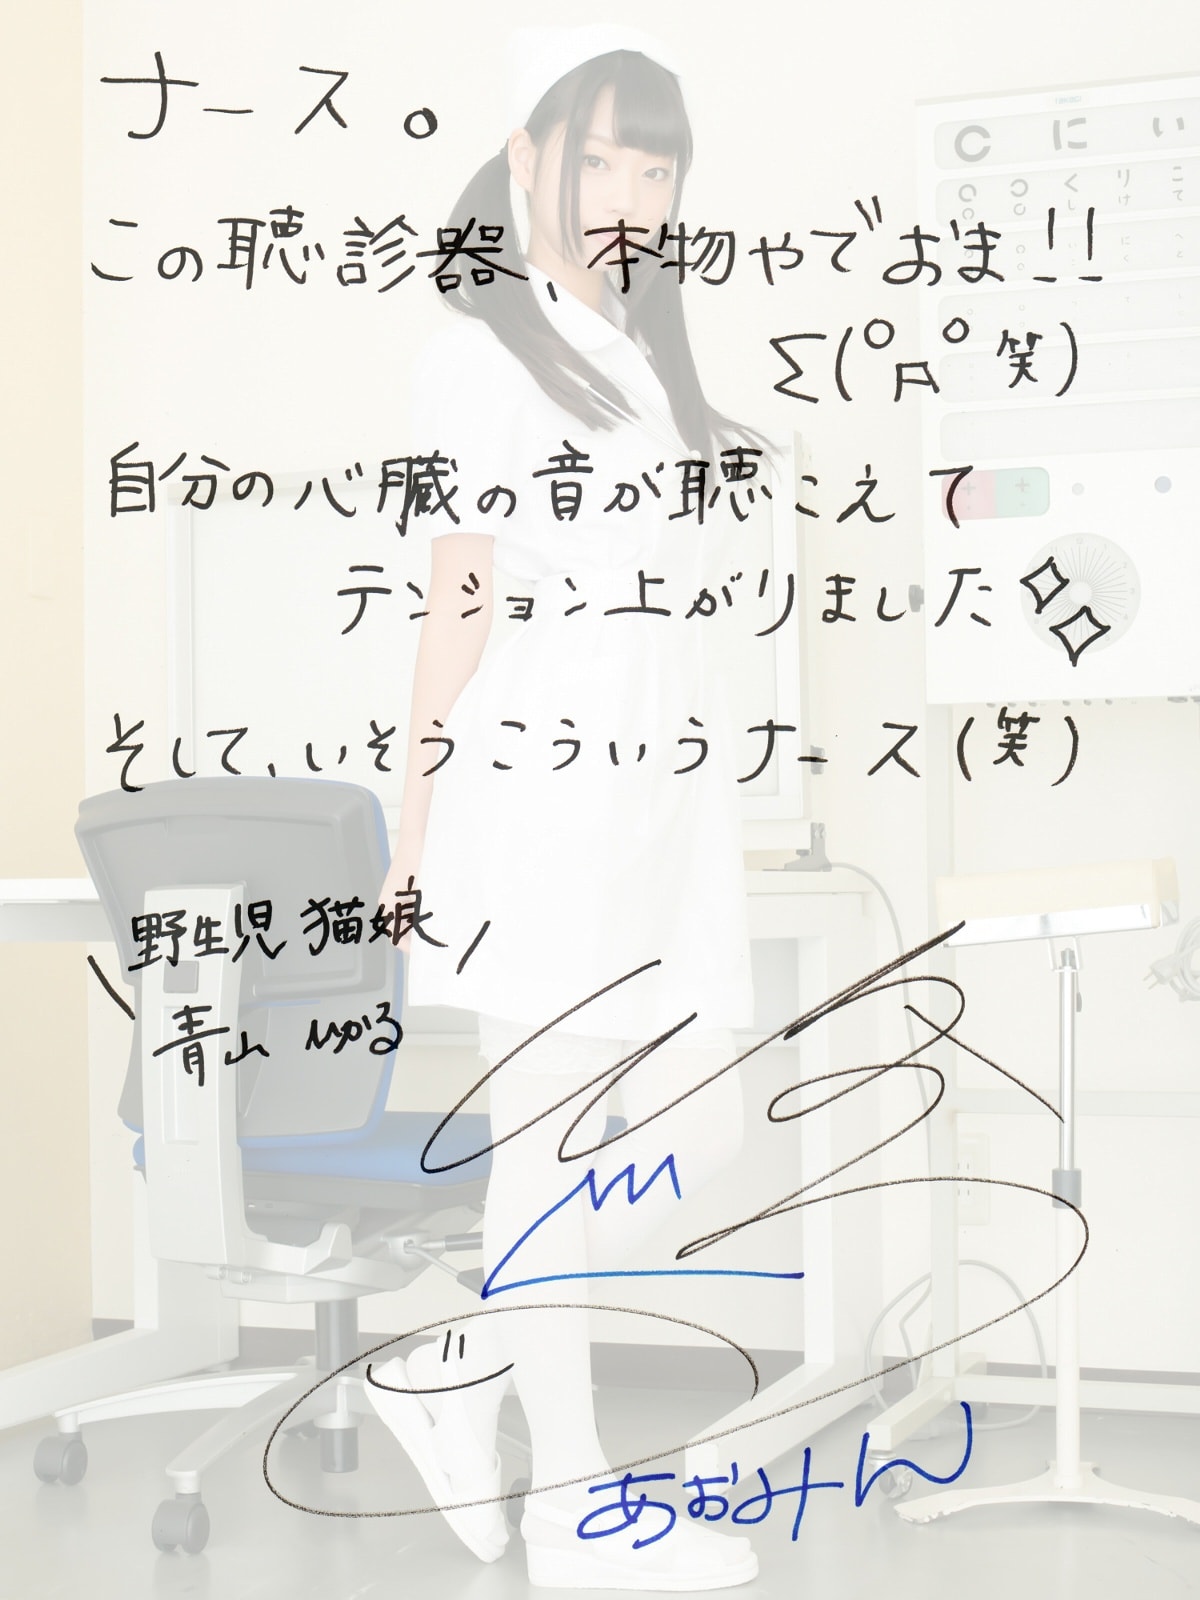 ナース。
この聴診器、本物やでおま!!
Σ(°Д° 笑)
自分の心臓の音が聴こえて
テンション上がりました
そして、いそうこういうナース(笑)
野生児 猫娘
青山 ひかる
あおみん
C に い
く り こ
し け て